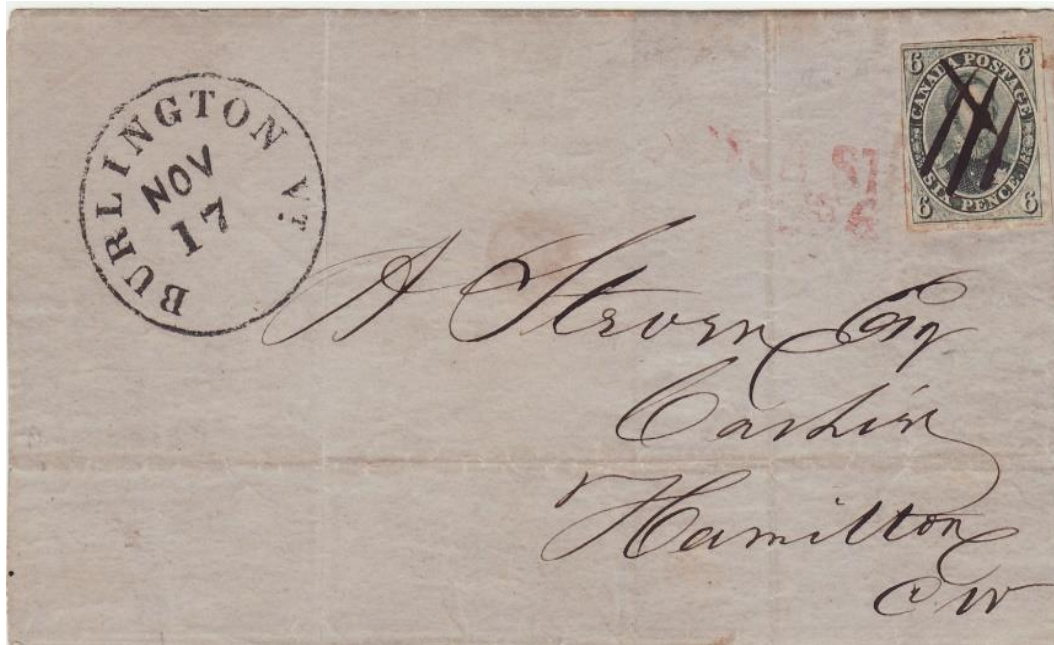 BURLINGTON Vt.
NOV
17
6 6
CANADA POSTAGE
SIX PENCE.
6 6
A Steven Esq
Cashier
Hamilton
CW